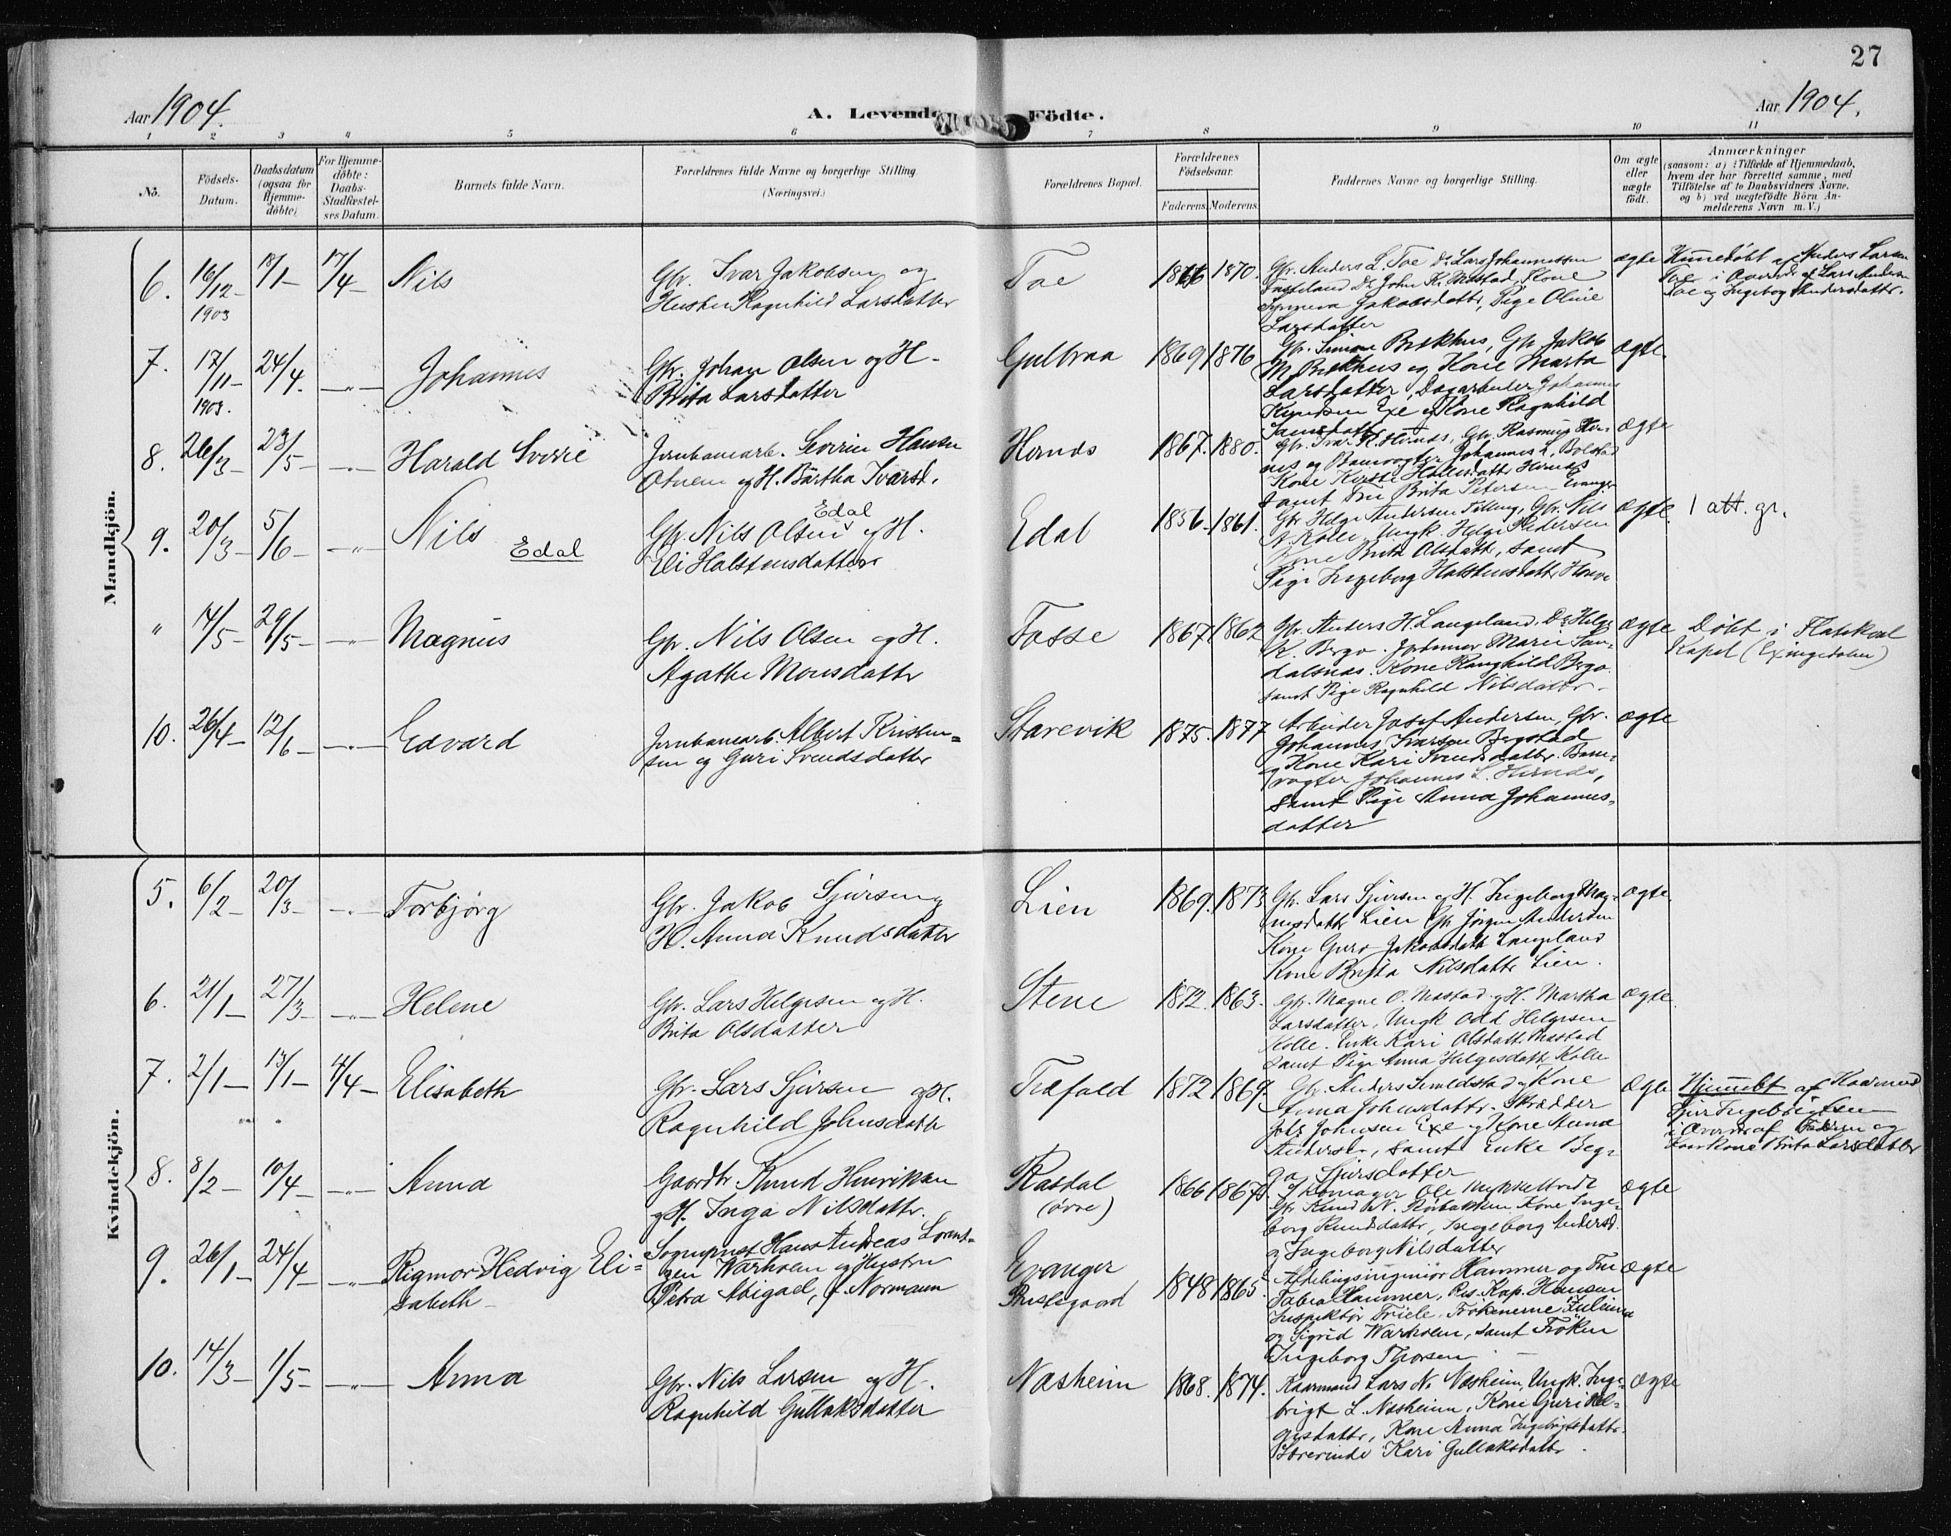 27
Aar 1904.
A. Levende Födte.
Aar 1904.
1 2 3 4 5 6 7 8 9 10 11
No.
Födsels-Datum.
Daabsdatum (ogsaa for Hjemme-döbte)
For Hjemme-döbte: Daabs-Stadfæstel-ses Datum.
Barnets fulde Navn.
Forældrenes fulde Navne og borgerlige Stilling
(Næringsvei.)
Forældrenes Bopæl.
Forældrenes Födselsaar.
Faderens. Moderens.
Faddernes Navne og borgerlige Stilling.
Om ægte eller uægte födt.
Anmærkninger
(saasom: a) i Tilfælde af Hjemmedaab,
hvem der har forrettet samme, med
Tilföielse af to Daabsvidners Navne,
og b) ved uægtefödte Börn An-
melderens Navn m. V.)
Mandkjön.
6. 16/12 1903 17/4 Nils
Gbr. Ivar Jakobsen og
Hustru Ragnhild Larsdatter
Toe 1870.
Gbr. Anders L. Toe Do Lars Johannessen
Larsdatter
ægte
7. 17/11 1903. 24/4 -"- Johannes
Gbr. Johan Olsen og H.
Brita Larsdatter
Gulbraa 1869 1876
Gbr. Simon Brekhus, Gbr. Jakob
Brekhus og Kone Marta
Larsdatter, Dagarbeider Johannes
Knudsen Exe og Kone Ragnhild
ægte.
8. 26/3 23/5 -"- Harald Sverre
Jernbanearb. Severin Hansen
og H. Bartha Ivarsd.
Hernes 1867. 1880.
ægte
9. 20/3 5/6 -"- Nils Edal
Gbr. Nils Olsen Edal og H.
Eli Halstensdatter
Edal 1856. 1861.
Kone Brita Olsdatter, samt
Pige Ingeborg Halstensdatter
ægte. 1 att. gr.
" 14/5 29/5 -"- Magnus
Gbr. Nils Olsen og H.
Agathe Monsdatter
Fosse 1867 1862
Gbr. Anders H. Langeland. Do Helge
K. Bergo. Marie San-
dalsnes. Kone Ranghild Bergo
samt Pige Ragnhild Nilsdatter.
ægte
Döbt i Flatekval
Kapel (Exingedalen)
10. 26/4 12/6 -"- Edvard
Jernbanearb. Albert Kristen=
sen og Guri Svendsdatter
Starevik 1875. 1877
Arbeider Josef Andersen, Gbr.
Johannes Ivarsen Bergstad
og Kone Kari Svendsdatter. Bane-
vogter Johannes L. Hernes,
samt Pige Anna Johannes-
datter
ægte
Kvindekjön.
5. 6/2 20/3 -"- Torbjørg
Gbr. Jakob Sjursen og
H. Anna Knudsdatter
Lien 1869. 1873
Gbr. Lars Sjursen og H. Ingeborg Mag-
nusdatter Lien Gbr. Jörgen Andersen
Kone Guro Jakobsdatter Langeland
Kone Brita Nilsdatter Lien.
ægte.
6. 21/1 27/3 -"- Helene
Gbr. Lars Helgesen og H.
Brita Olsdatter
Stene 1872. 1863.
Gbr. Magne O. Mæstad og H. Martha
Larsdatter, Ungk. Odd Helgesen
Kolle. Enke Kari Olsdatter Mæstad
samt Pige Anna Helgesdatter Kolle
ægte.
7. 2/1 13/1 4/4 Elisabeth
Gbr. Lars Sjursen og H.
Ragnhild Johnsdatter
Trefald 1872 1869.
Gbr. Anders og Kone
Anna Johnsdatter. Skrædder
Johnsen Exe og Kone Anna
Andersd., samt Enke Beg-
ga Sjursdatter
ægte
Hjemmedöbt af Kaarmand
Sjur Ingebrigtsen
i Overvær af Faderen og
Kone Brita Larsdatter
8. 8/2 10/4 -"- Anna
Gaardbr. Knud Henriksen
og H. Inga Nilsdatter.
Rasdal (øvre) 1866 1867
Skomager Ole Mykkeltvedt
Gbr. Knud N. Kone Inge-
borg Knudsdatter, Ingeborg Andersd.
og Ingeborg Nilsdatter
ægte
9. 26/1 24/4 -"- Rigmor Hedvig Eli=
sabeth
Sogneprest Hans Andreas Lorent-
zen Warholm og Hustru
Petra Abigael, f. Normann
Evanger
Prestegaard
1848 1865.
Afdelingsingeniør Hammer og Frue
Hammer, Res. Kap. Hansen
Inspektør Friele. Frøknerne Juliema
og Sigrid Warholm, samt Frøken
Ingeborg Thorsen
ægte
10. 14/3 1/5 -"- Anna
Gbr. Nils Larsen og H.
Ragnhild Gullaksdatter
Næsheim 1868. 1874.
Kaarmand Lars N. Næsheim, Ungk. Inge-
brigt L. Næsheim, Kone Guri Hel-
gesdatter, Kone Anna Ingebrigtsdatter.
Lærerinde Kari Gullaksdatter
ægte